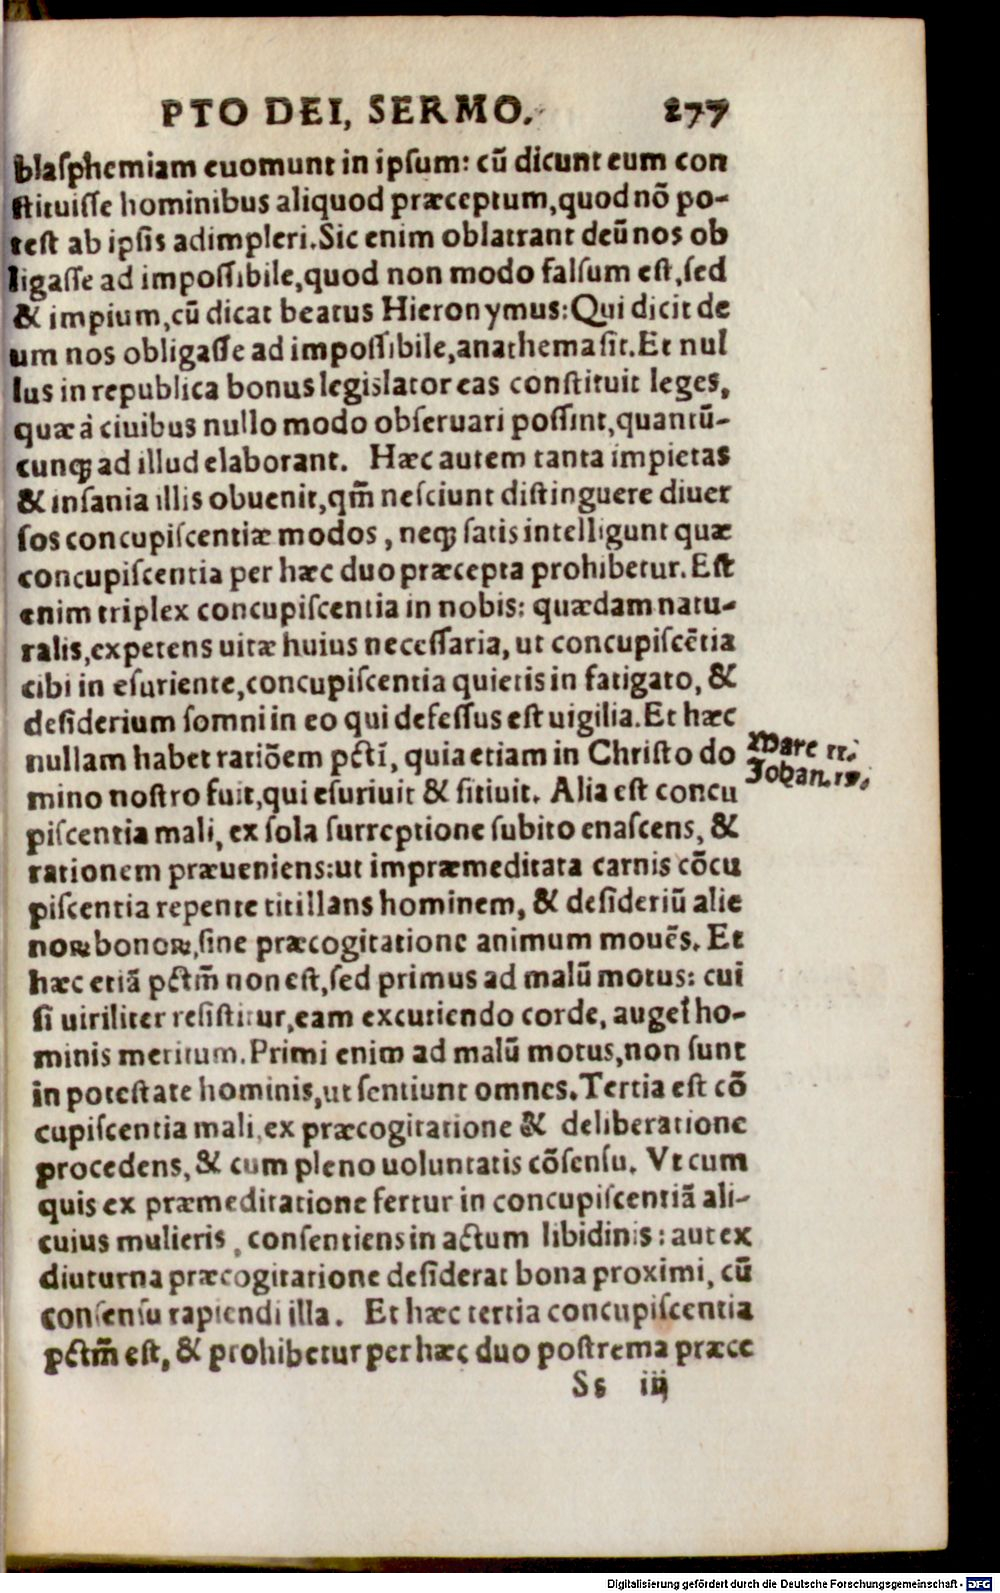 PTO DEI, SERMO. 277
blaſphemiam euomunt in ipſum: cū dicunt eum con
ſtituiſſe hominibus aliquod præceptum, quod nō po-
teſt ab ipſis adimpleri. Sic enim oblatrant deū nos ob
ligaſſe ad impoſſibile, quod non modo falſum eſt, ſed
& impium, cū dicat beatus Hieronymus: Qui dicit de
um nos obligaſſe ad impoſſibile, anathema ſit. Et nul
lus in republica bonus legislator eas conſtituit leges,
quæ à ciuibus nullo modo obſeruari poſſint, quantū-
cunqꝫ ad illud elaborant. Hæc autem tanta impietas
& inſania illis obuenit, qm̄ neſciunt diſtinguere diuer
ſos concupiſcentiæ modos, neqꝫ ſatis intelligunt quæ
concupiſcentia per hæc duo præcepta prohibetur. Eſt
enim triplex concupiſcentia in nobis: quædam natu-
ralis, expetens uitæ huius neceſſaria, ut concupiſcētia
cibi in eſuriente, concupiſcentia quietis in fatigato, &
deſiderium ſomni in eo qui defeſſus eſt uigilia. Et hæc
nullam habet ratiōem pctī, quia etiam in Chriſto do
mino noſtro fuit, qui eſuriuit & ſitiuit. Alia eſt concu
piſcentia mali, ex ſola ſurreptione ſubito enaſcens, &
rationem præueniens: ut impræmeditata carnis cōcu
piſcentia repente titillans hominem, & deſideriū alie
noꝝ bonoꝝ, ſine præcogitatione animum mouēs. Et
hæc etiā pctm̄ non eſt, ſed primus ad malū motus: cui
ſi uiriliter reſiſtitur, eam excutiendo corde, auget ho-
minis meritum. Primi enim ad malū motus, non ſunt
in poteſtate hominis, ut ſentiunt omnes. Tertia eſt cō
cupiſcentia mali, ex præcogitatione & deliberatione
procedens, & cum pleno uoluntatis cōſenſu. Vt cum
quis ex præmeditatione fertur in concupiſcentiā ali-
cuius mulieris, conſentiens in actum libidinis: aut ex
diuturna præcogitatione deſiderat bona proximi, cū
conſenſu rapiendi illa. Et hæc tertia concupiſcentia
pctm̄ eſt, & prohibetur per hæc duo poſtrema præce
Ss iij
Marc 11.
Johan. 19.
Digitalisierung gefördert durch die Deutsche Forschungsgemeinschaft - DFG